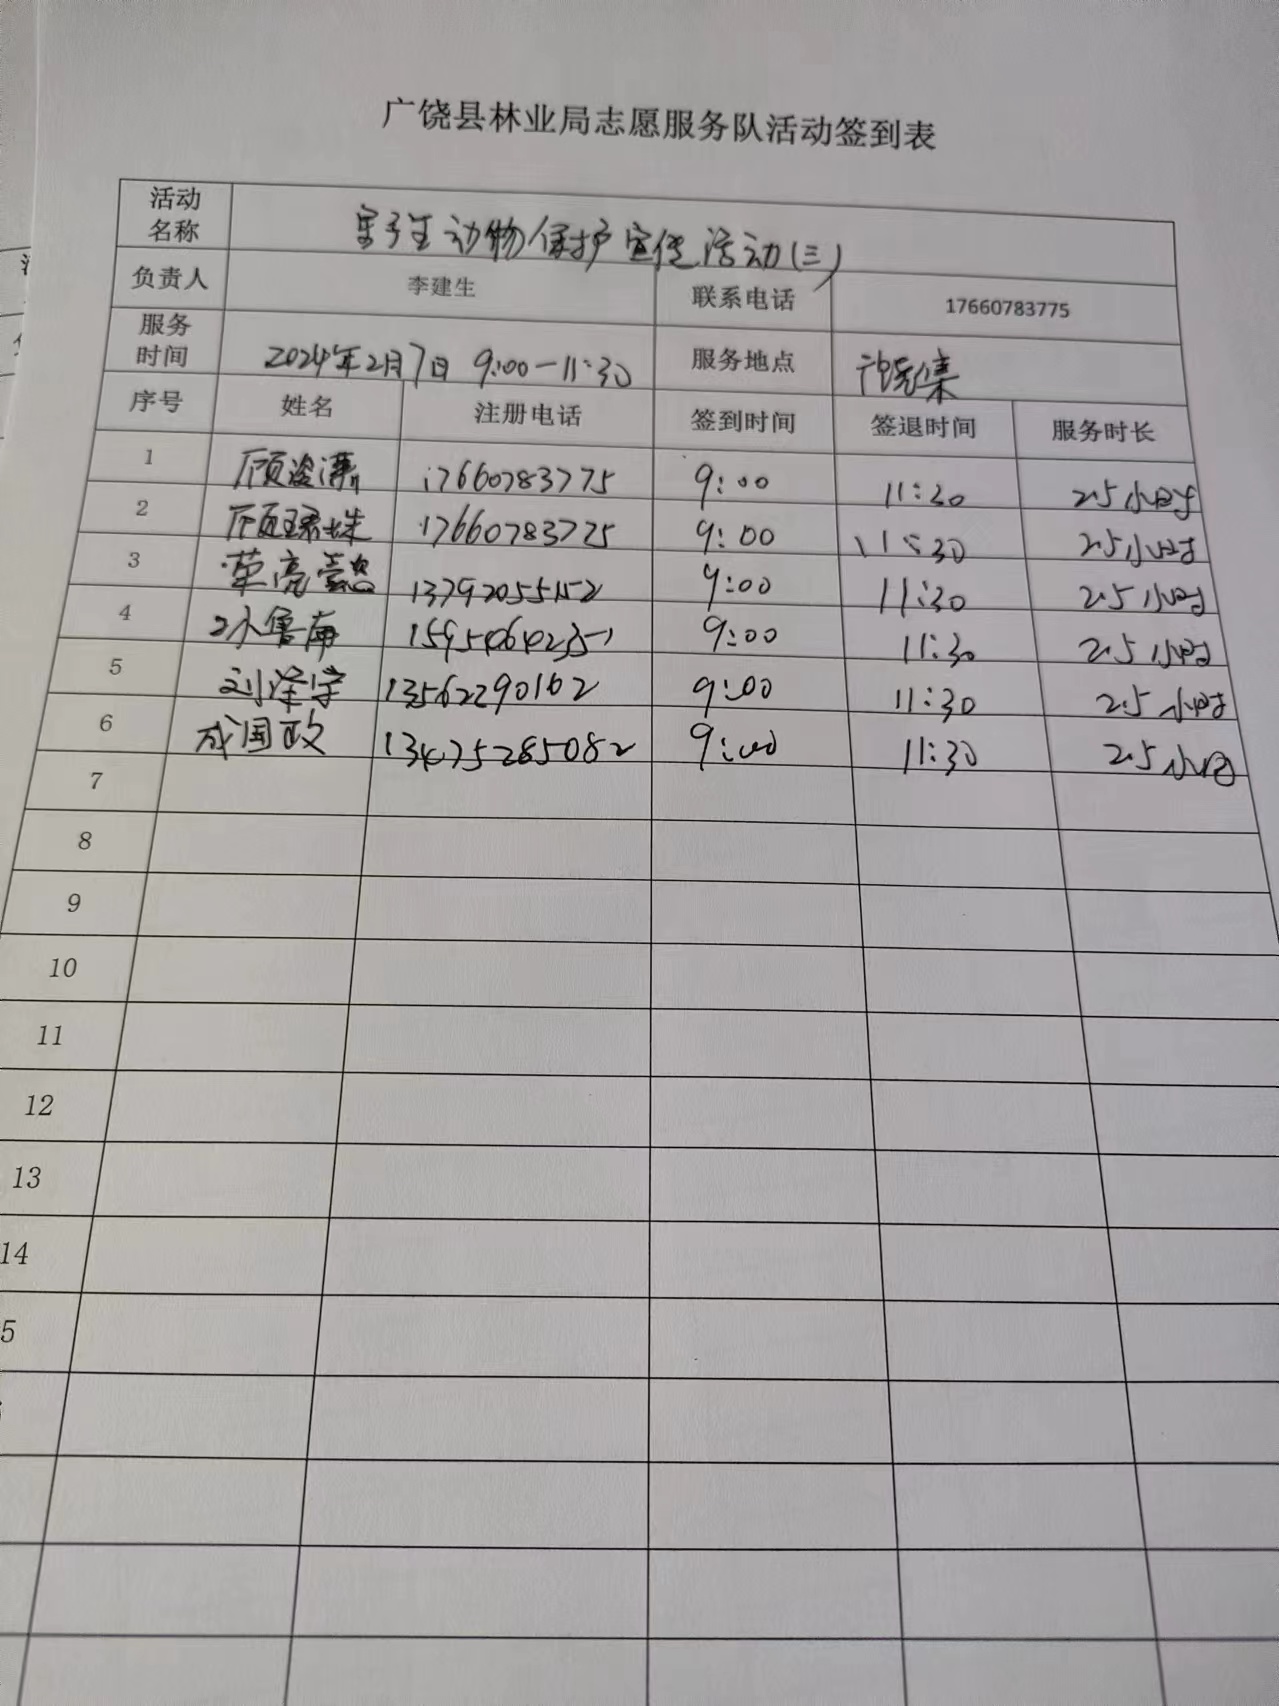 广饶县林业局志愿服务队活动签到表
活动名称 野生动物保护宣传活动(三)
负责人 李建生 联系电话 17660783775
服务时间 2024年2月7日 9:00-11:30 服务地点 集
序号 姓名 注册电话 签到时间 签退时间 服务时长
1 顾 17660783775 9:00 11:30 2.5小时
2 顾 17660783775 9:00 11:30 2.5小时
3 荣亮 13792055152 9:00 11:30 2.5小时
4 鲁南 9:00 11:30 2.5小时
5 刘泽宇 13562290162 9:00 11:30 2.5小时
6 成国政 13475285082 9:00 11:30 2.5小时
7
8
9
10
11
12
13
14
5